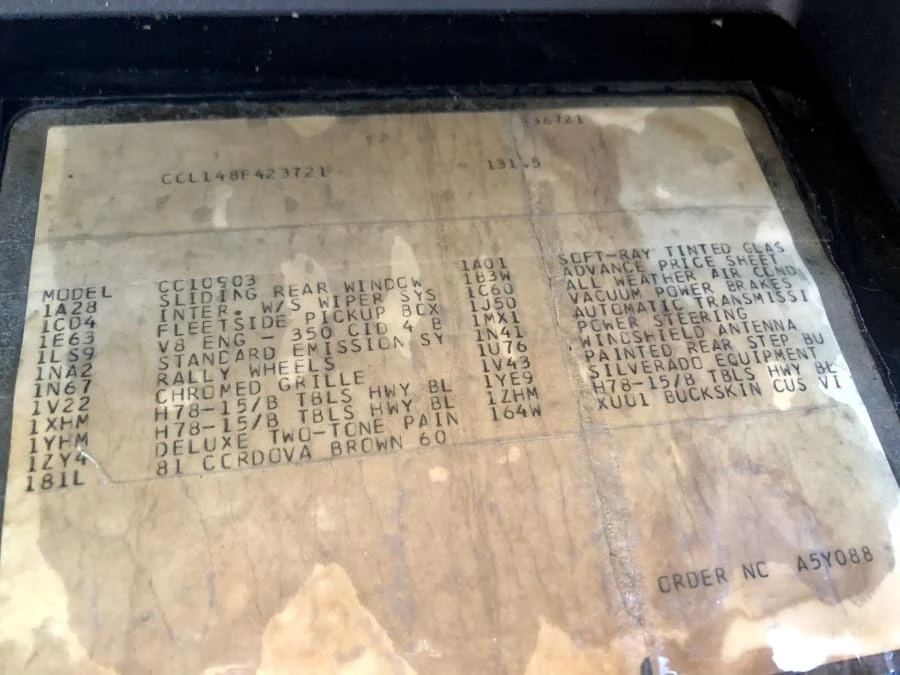 36721
CCL148F423721 131.5
MODEL CC10903
1A28 SLIDING REAR WINDOW 1A01 SOFT-RAY TINTED GLAS
1CD4 INTER. W/S WIPER SYS 1B3W ADVANCE PRICE SHEET
1E63 FLEETSIDE PICKUP BOX 1C60 ALL WEATHER AIR COND
1LS9 V8 ENG - 350 CID 4 B 1J50 VACUUM POWER BRAKES
1NA2 STANDARD EMISSION SY 1MX1 AUTOMATIC TRANSMISSI
1N67 RALLY WHEELS 1N41 POWER STEERING
1V22 CHROMED GRILLE 1U76 WINDSHIELD ANTENNA
1XHM H78-15/B TBLS HWY BL 1V43 PAINTED REAR STEP BU
1YHM H78-15/B TBLS HWY BL 1YE9 SILVERADO EQUIPMENT
1ZY4 DELUXE TWO-TONE PAIN 1ZHM H78-15/B TBLS HWY BL
181L 81 CORDOVA BROWN 60 164W XUU1 BUCKSKIN CUS VI
ORDER NO A5Y088